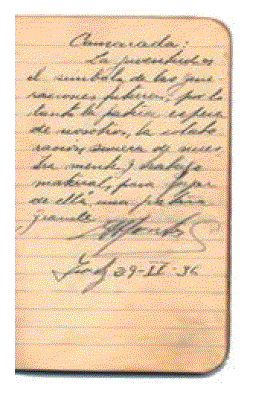 Camarada:
La juventud es
el simbolo de las gene
raciones futuras, por lo
tanto la patria espera
de nosotros, la colabo
racion sincera de nues
tra mente y trabajo
material, para forjar
de ella una patria
grande
29-II-36